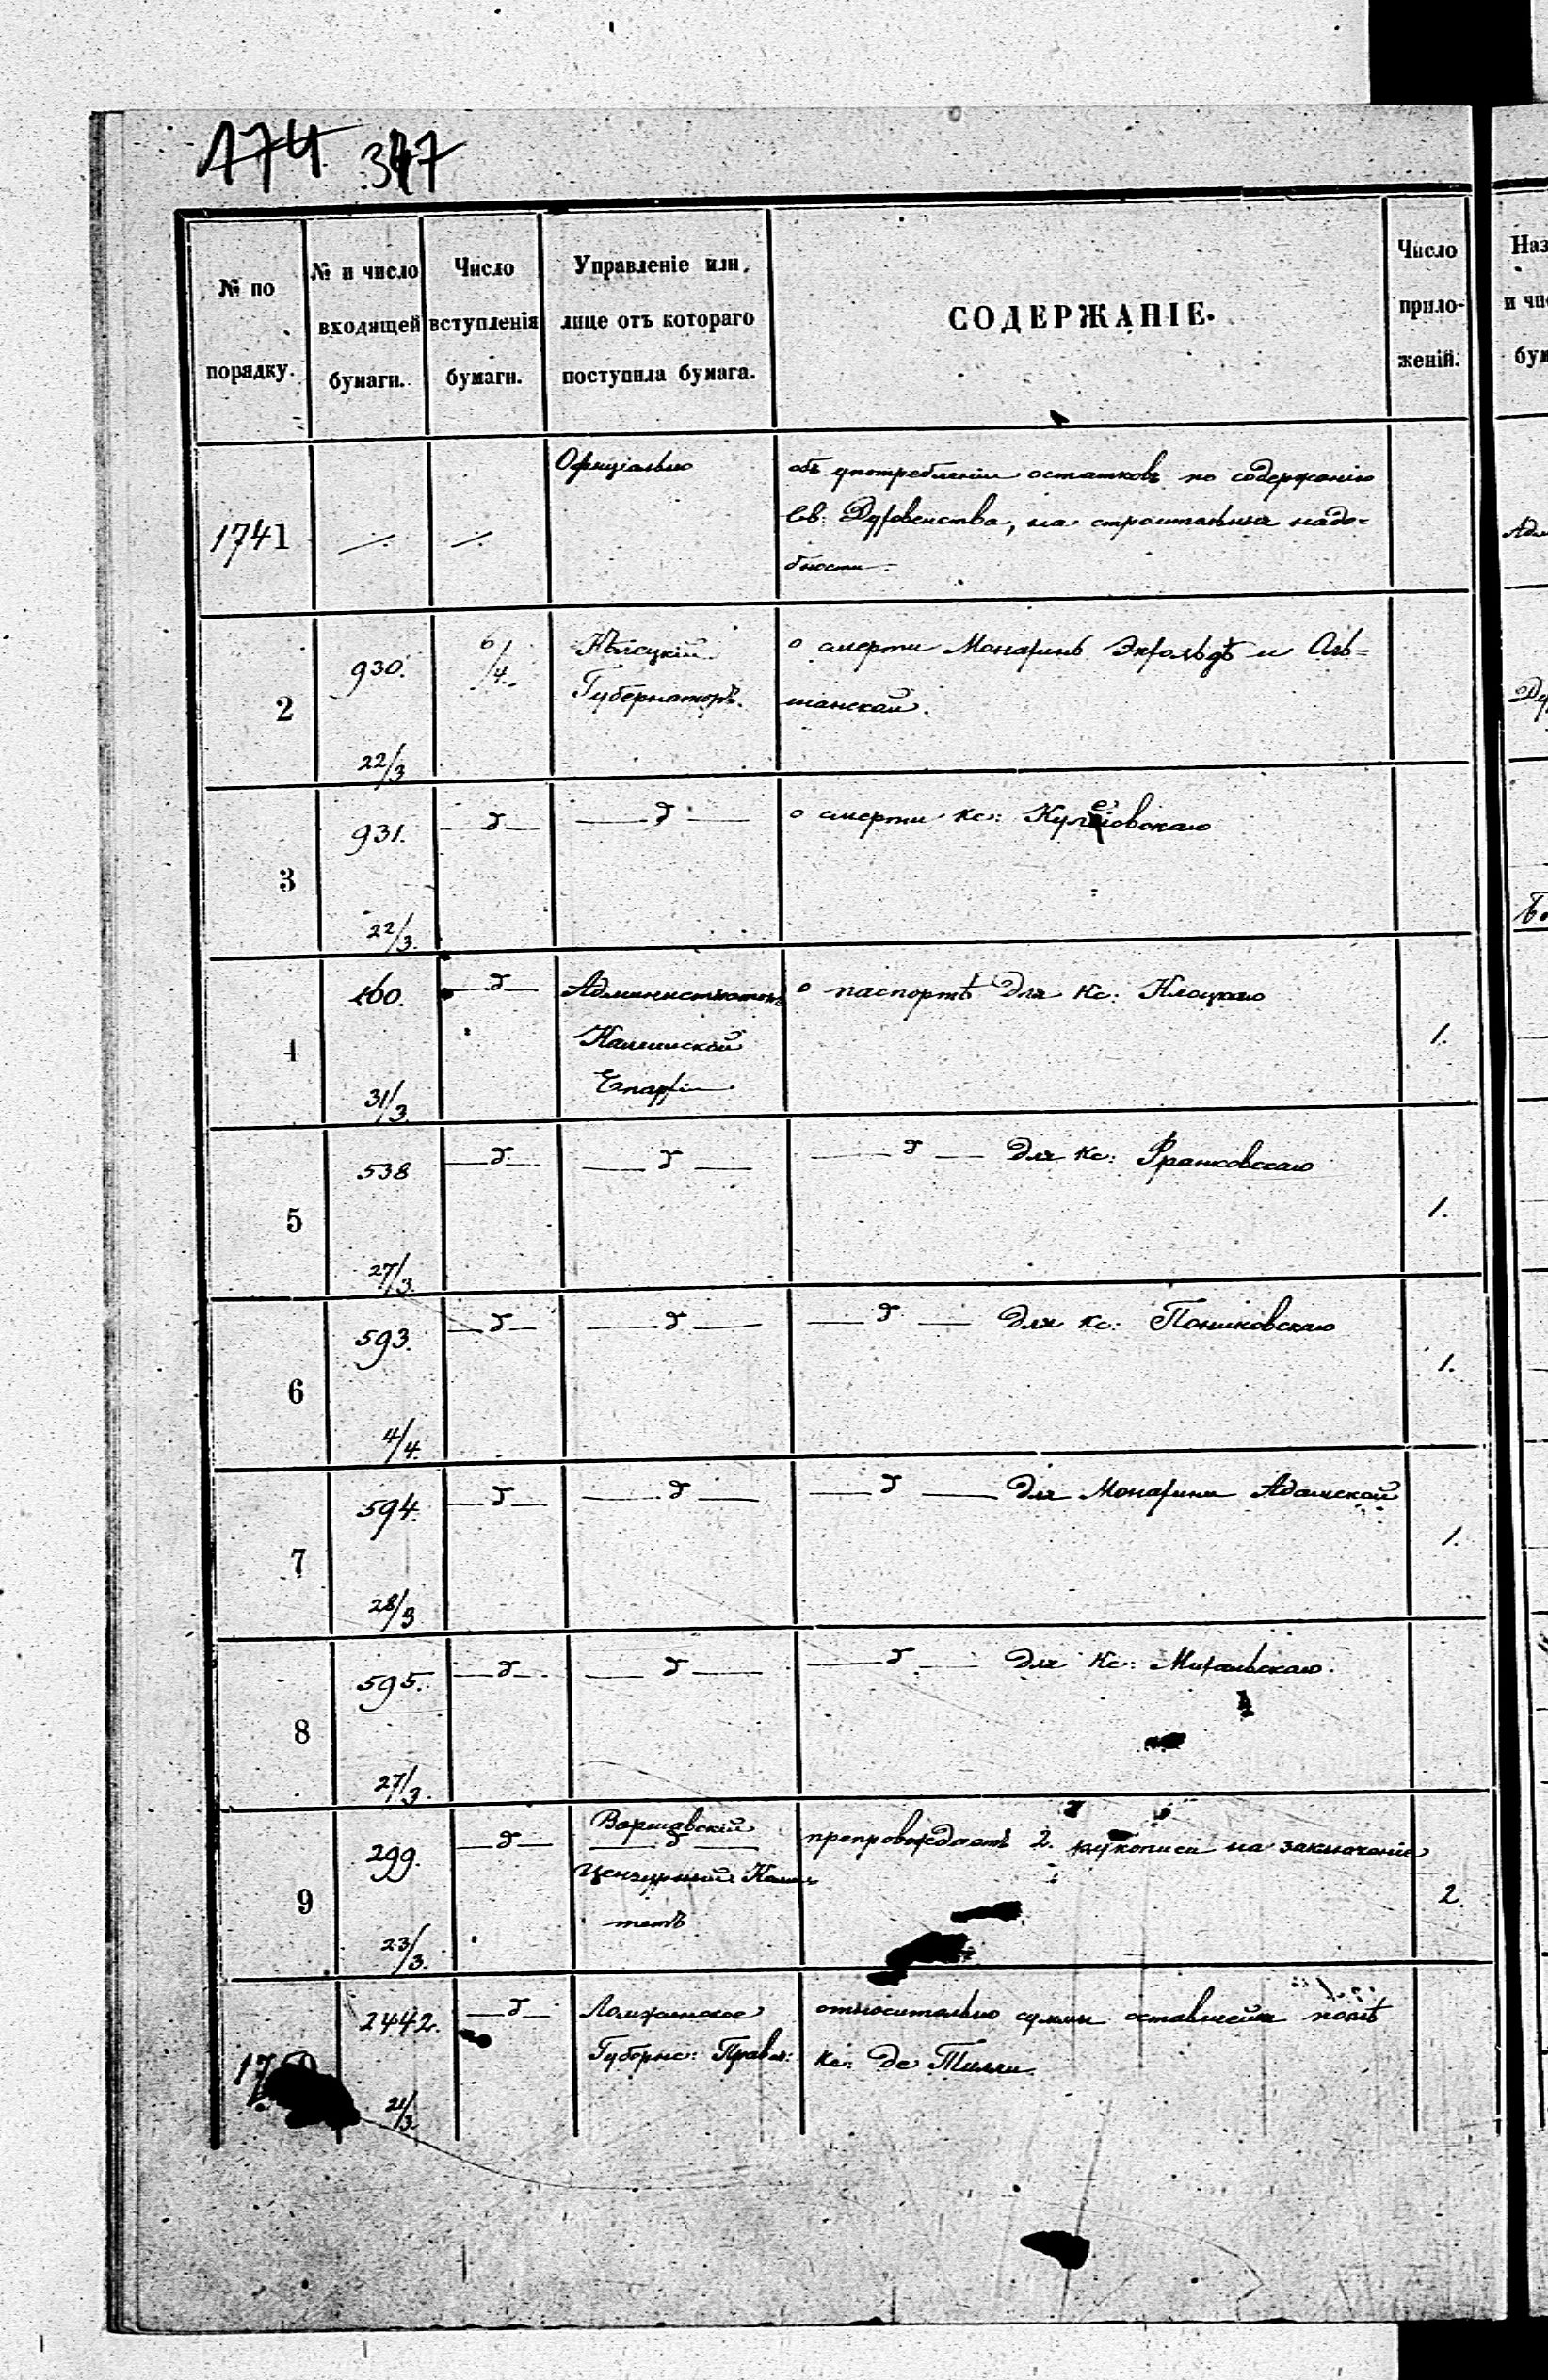 174 347
№ по порядку.
№ и число входящей бумаги.
Число вступленія бумаги.
Управленіе или лице отъ котораго поступила бумага.
СОДЕРЖАНІЕ.
Число прило- женій.
Наз
и чи
бум
1741 ·/· ·/· Официально
объ употребленіи остатковъ по содержанію
Св: Духовенства, на строительныя надо=
бности.
2 930. 22/3 6/4. Кѣлецкій
Губернаторъ.
о смерти Монахинь и
шанской.
3 931. 22/3. —д— —д— о смерти кс:
4 160. 31/3. —д— Администраторъ
Калишской
Епархіи
о паспортѣ для Кс: Клоцкаго 1.
5 538 27/3. —д— —д— —д— для кс: Франковскаго 1.
6 593. 4/4. —д— —д— —д— для кс: Пониковскаго 1.
7 594. 28/3 —д— —д— —д— для Монахини Адамской 1.
8 595. 27/3. —д— —д— —д— для Кс: Михальскаго.
9 299. 23/3. —д— Варшавскій
—д—
Цензурный Коми=
тетъ
препровождаетъ 2. рукописи на заключеніе 2.
17 2442. 21/3. —д— Ломжинское
Губернс: Правл:
относительно суммы оставшейся послѣ
Кс: де Тилли.